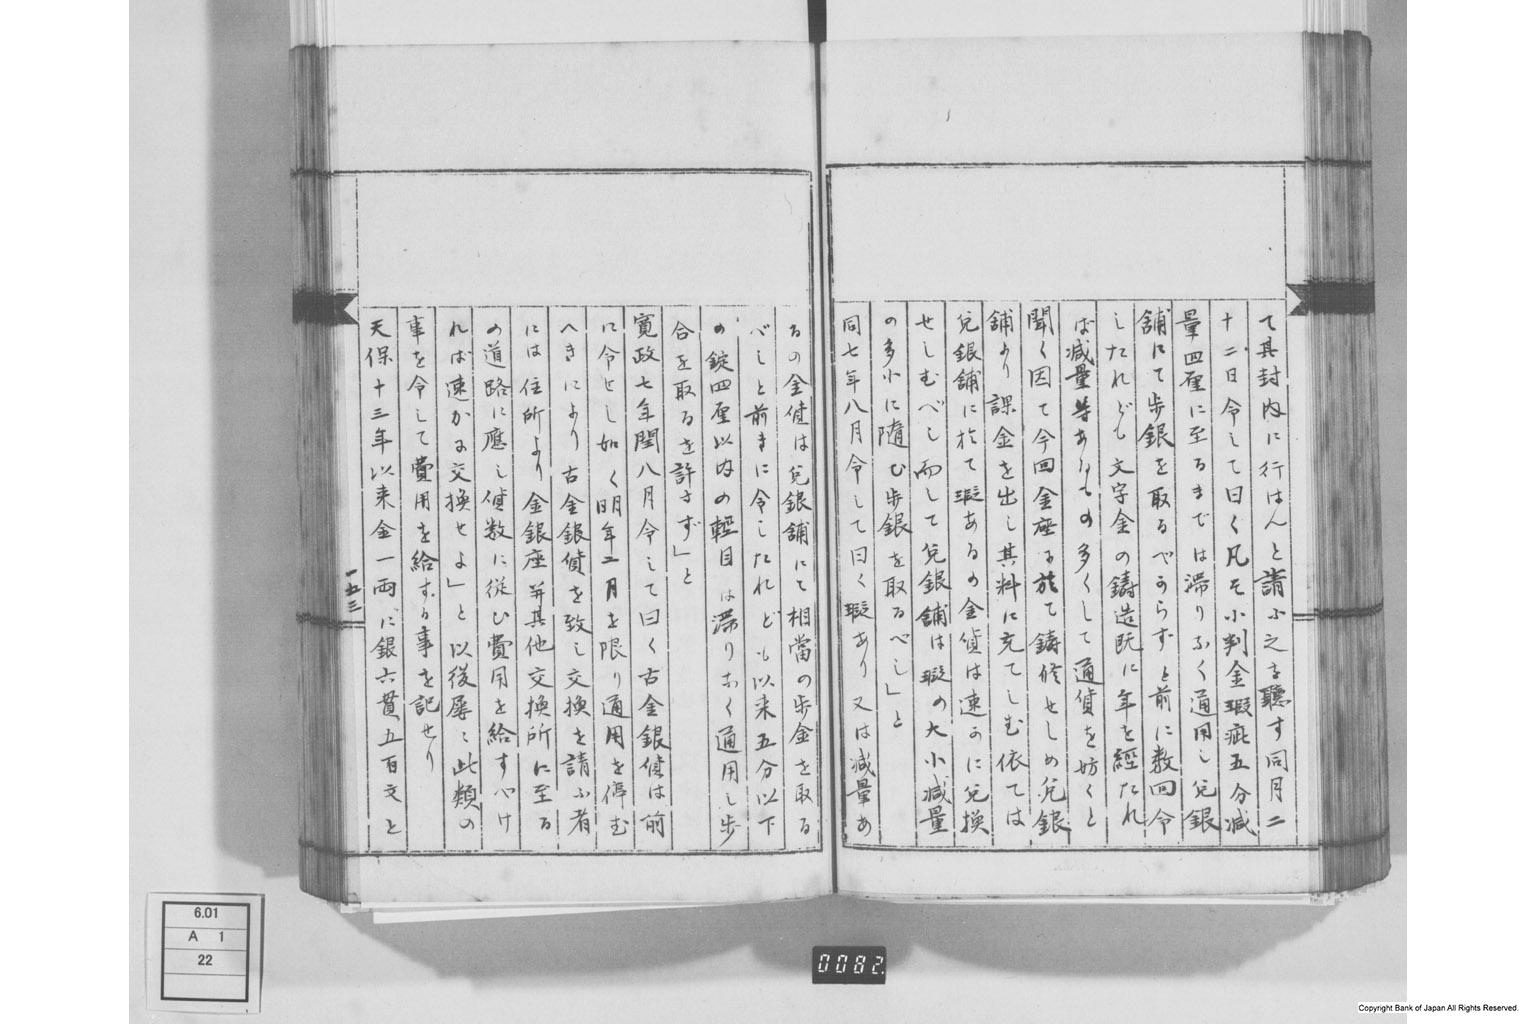 て其封内に行はんと請ふ之を聽す同月二
十二日令して曰く凡そ小判金瑕疵五分減
量四厘に至るまでは滯りなく通用し兌銀
舗にて歩銀を取るべからずと前に数回令
したれども文字金の鋳造既に年を經たれ
ば減量等あるもの多くして通貨を妨くと
聞く因て今回金座に於て鋳修せしめ兌銀
舗より課金を出し其料に充てしむ依ては
兌銀舗に於て瑕あるの金貨は速かに兌換
せしむべし而して兌銀舗は瑕の大小減量
の多少に随ひ歩銀を取るべし」と
同七年八月令して曰く瑕あり又は減量あ
るの金貨は兌銀舗にて相當の歩金を取る
べしと前きに令したれども以来五分以下
の錠四厘以内の輕目は滯りなく通用し歩
合を取るを許さず」と
寛政七年閏八月令して曰く古金銀貨は前
に令せし如く明年二月を限り通用を停む
へきにより古金銀貨を致し交換を請ふ者
には住所より金銀座并其他交換所に至る
の道路に應し貨数に従ひ費用を給すべけ
れば速かに交換せよ」と以後屡〻此類の
事を令して費用を給する事を記せり
天保十三年以来金一両に銀六貫五百文と
一五三
6.01
A 1
22
0082
Copyright Bank of Japan All Rights Reserved.